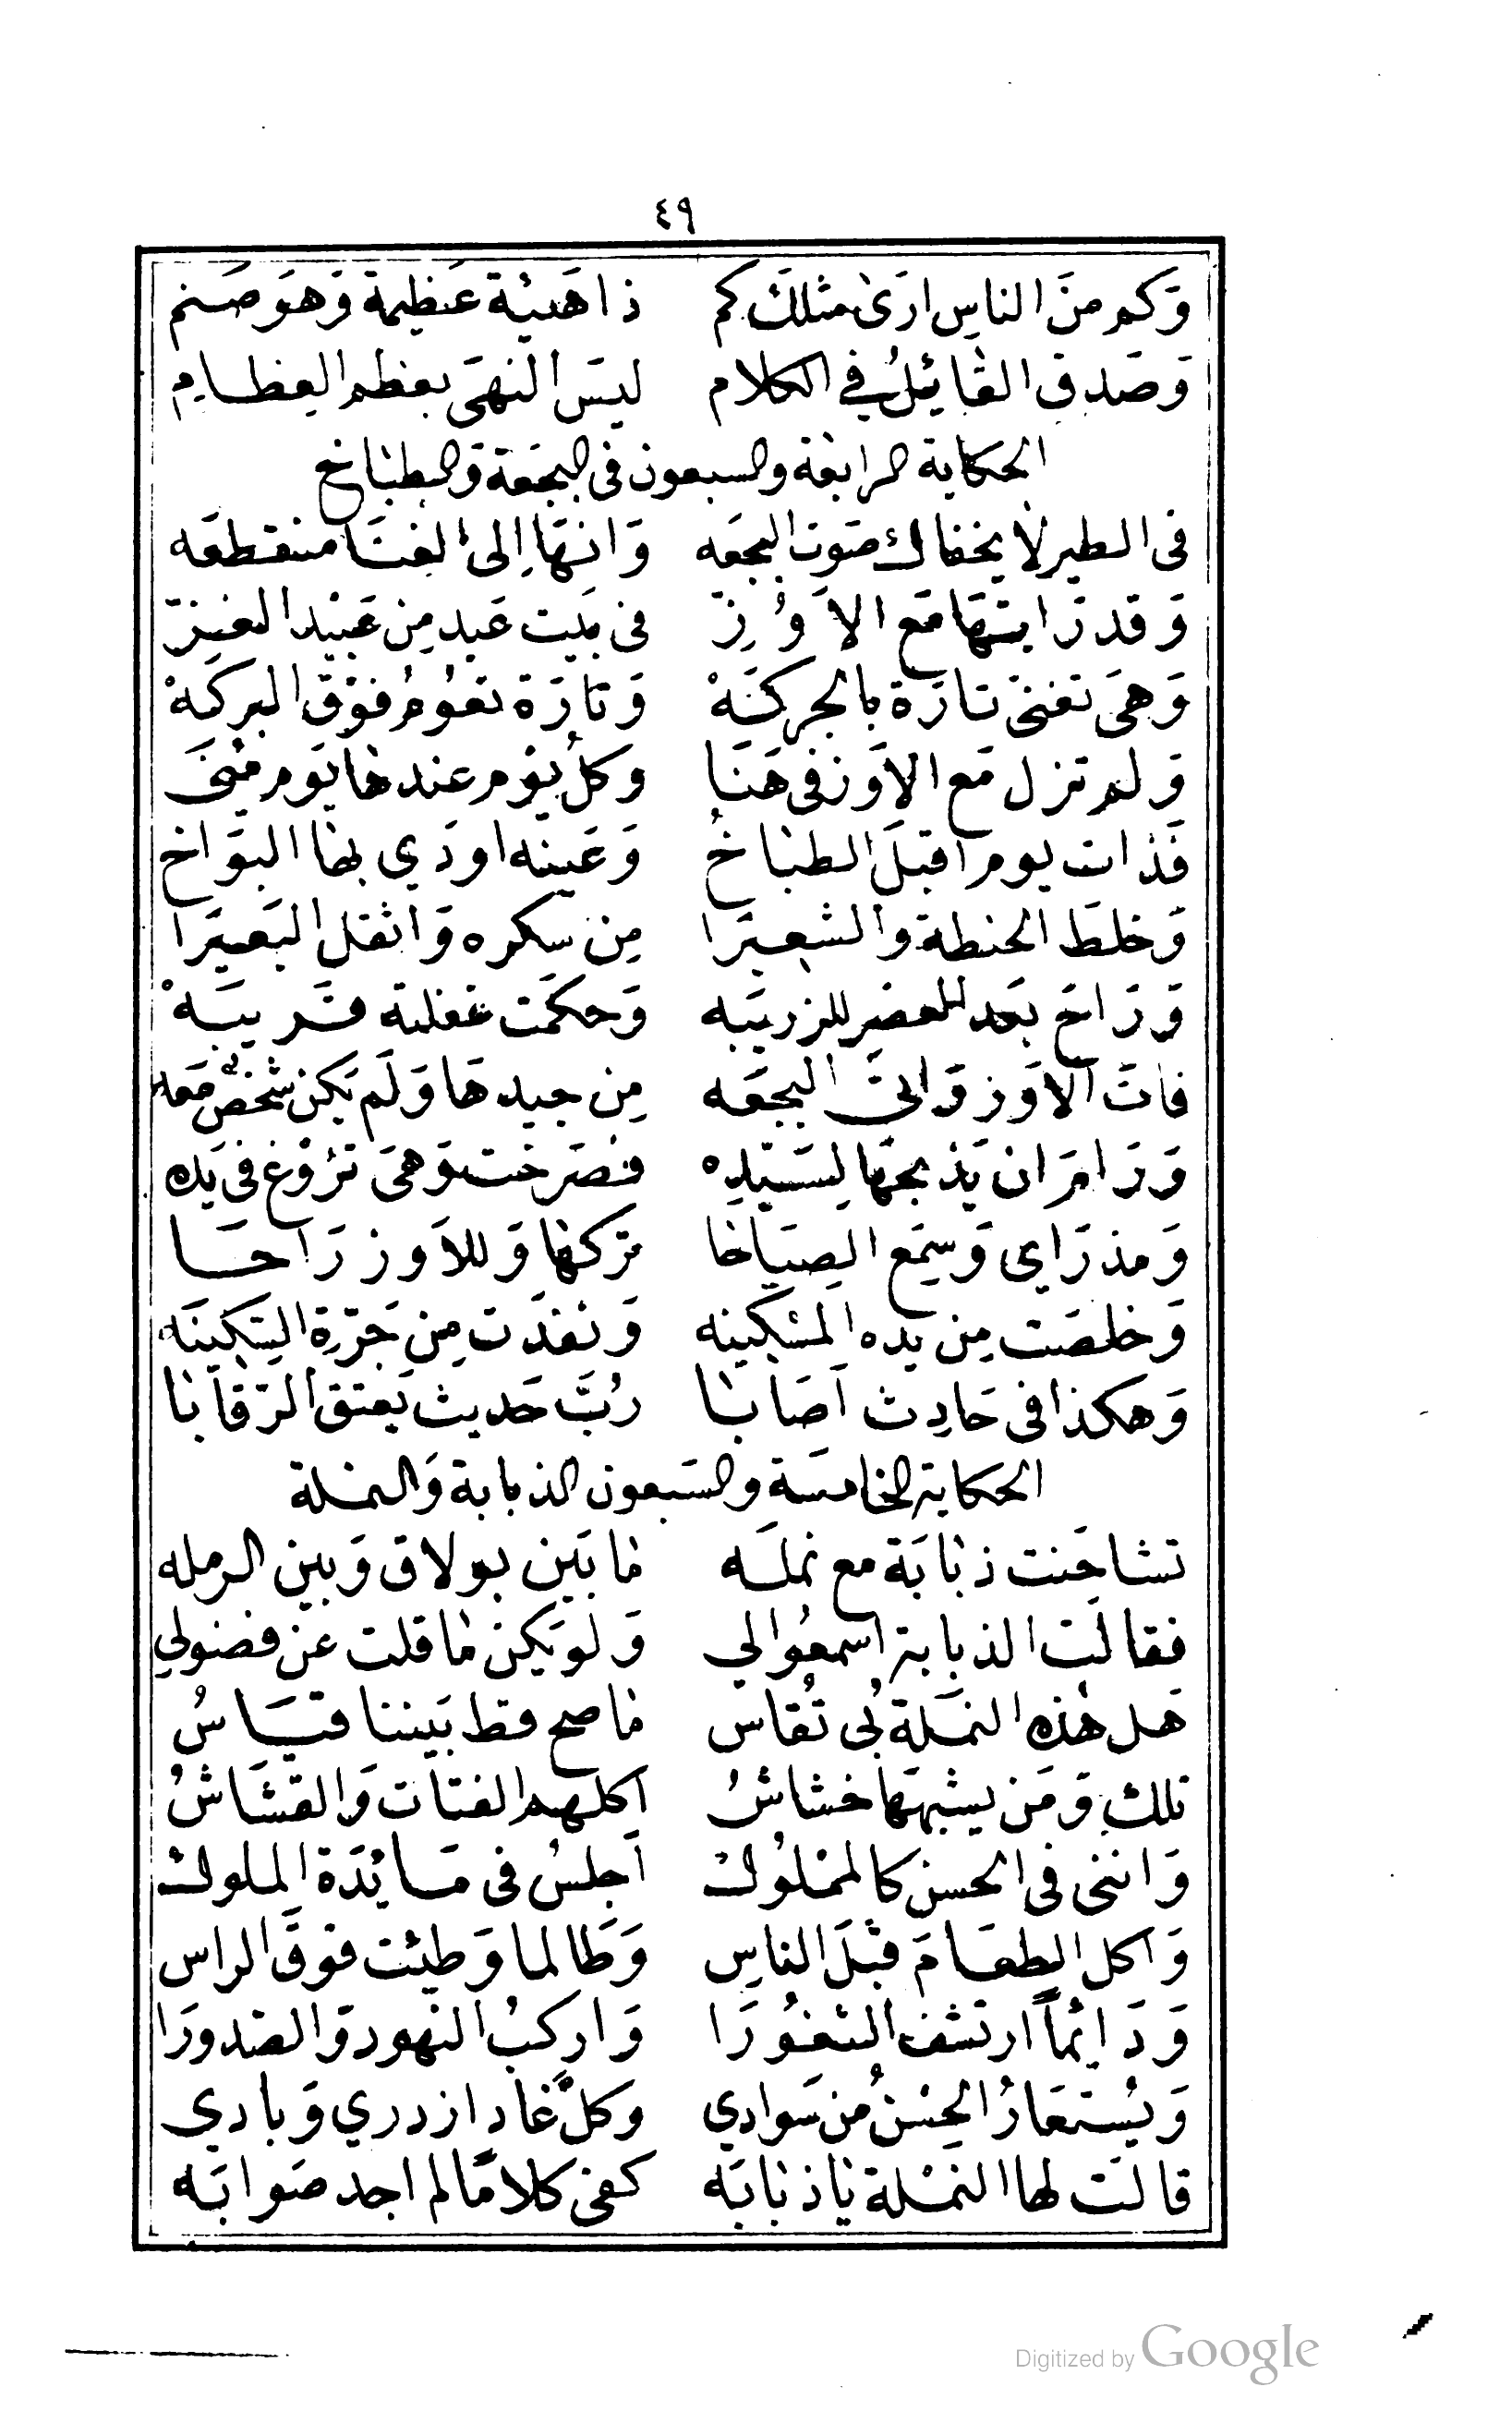 ٤٩
وَكم منَ الناسِ ارَى مثلكَ كم ذا هَيئة عَظيمة وَهوَ صَنم
وَصَدق القَائلُ في الكلام ليسَ النهَى بعظم العِظَامِ
الحكاية الرابعَة والسبعون في البجعَة وَالطبّاخ
في الطير لا يخفاك صَوت البجعَه وَانهَا اِلى الغنَا منقطعَه
وَقد رَايتهَا مَع الاَوُزِّ في بَيت عَبدٍ مِن عَبيْد العِزِّ
وَهيَ تغني تارَة بالحركَهْ وَتارَة تعُومُ فوْقَ البركَهْ
وَلم تزل مَع الاَوز في هَنَا وكلُ يوْم عندها يَوم مُنى
فَذات يوم اقبلَ الطبّاخُ وَعَينه اودَي بها البوَاخ
وَخلطَ الحنطة والشعِيرَا مِن سكره وَاثقل البَعيرَا
وَرَاحَ بَعد العصْرِ للزريبَه وَحكمَت غفلة قَريبَهْ
فاتَ الاَوز وَاتى البجعَه مِن جيدهَا وَلَم يَكن شخصٌ مَعه
وَرَامَ ان يَذبحهَا لِسَيّدِه فصَرخَت وَهيَ ترُوْغ في يَده
وَمذ رَاي وَسمِع الصيَاحَا تركهَا وَللاَوز رَاحَا
وَخلصَت مِن يَده المسْكينه وَنفذَت مِن حَرّةِ السّكينَه
وَهكذا في حَادِث اَصَابا رُبَّ حَديث يَعتق الرّقَابا
الحكاية الخامسَة والسَبعون الذبابة وَالنملة
تشاحَنت ذبابَة مع نملَه مَا بَين بولاق وَبين الرمله
فقالت الذبابة اسمعُوا لي وَلو يَكن مَا قلت عَن فضولي
هَل هٰذه النمَلة بي تُقاس مَا صح قط بَيننا قيَاسُ
تلك وَمَن يشبههَا خشاشُ اكلهم الفتات وَالقشَاشُ
وَانني في الحسن كالممْلُوك اَجلسُ في مَائِدَة الملوك
وَاكل الطعَامَ قبْلَ الناسِ وَطَالما وَطيئت فوقَ الراس
وَدَائماً ارتشف الثغُورَا وَاركبُ النهود وَالصدورَا
وَيُسْتعَارُ الحُسْنُ مِن سَوادي وكلُّ غاد ازدري وَبادي
قالت لها النمْلة يَا ذبَابَه كفى كلامًا لم اجد صَوابَه
Digitized by Google